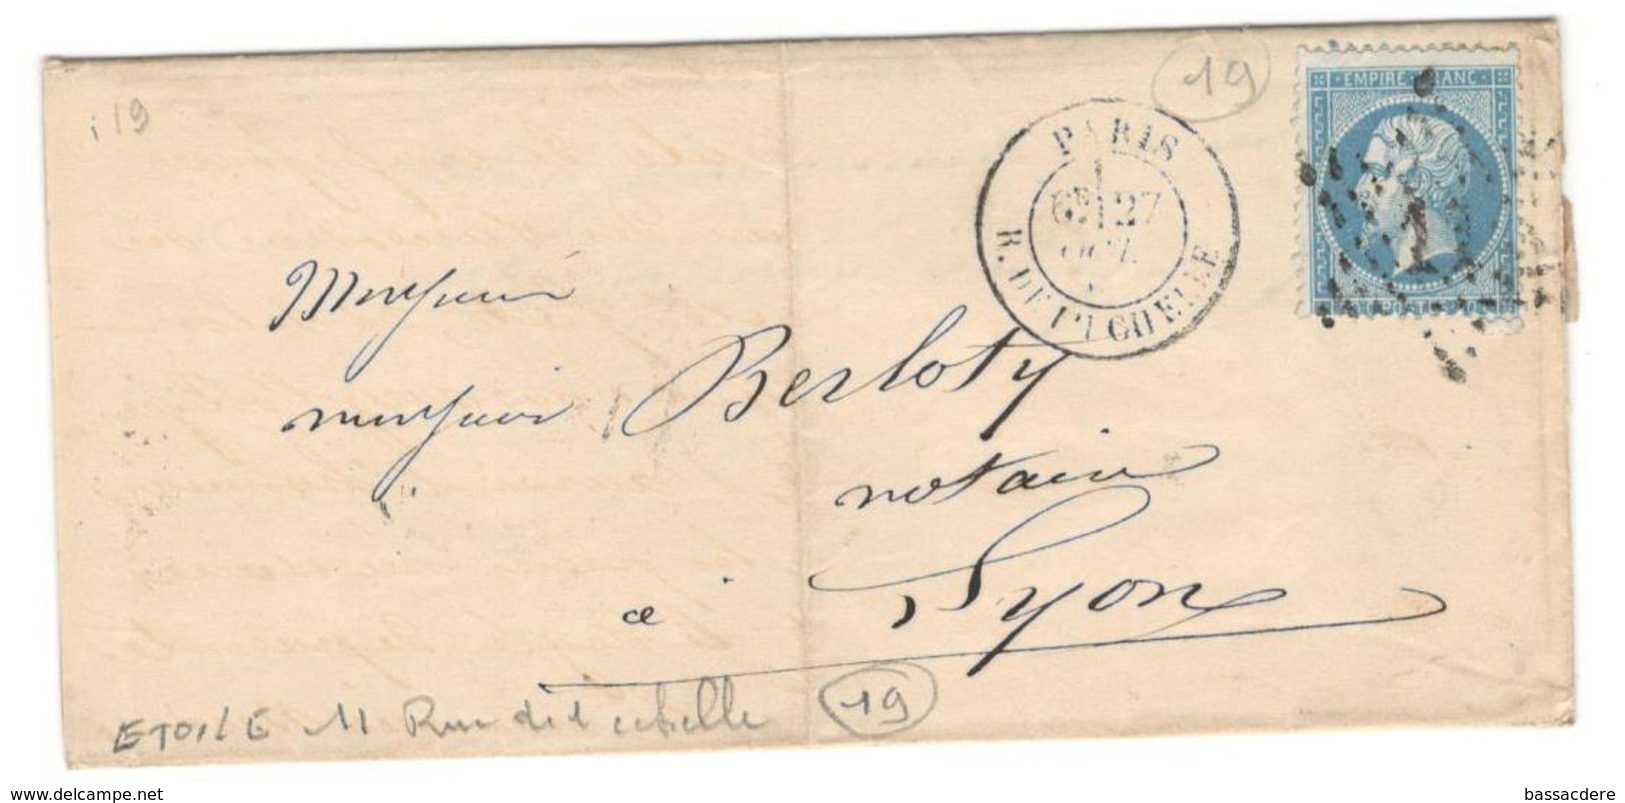 i 19
19
EMPIRE FRANC
PARIS
6E 27
OCT.
R. DE L'ECHELLE
POSTES
Monsieur
monsieur Berloty
notaire
à Lyon
ETOILE 11 Rue de l'echelle
19
www.delcampe.net
bassacdere